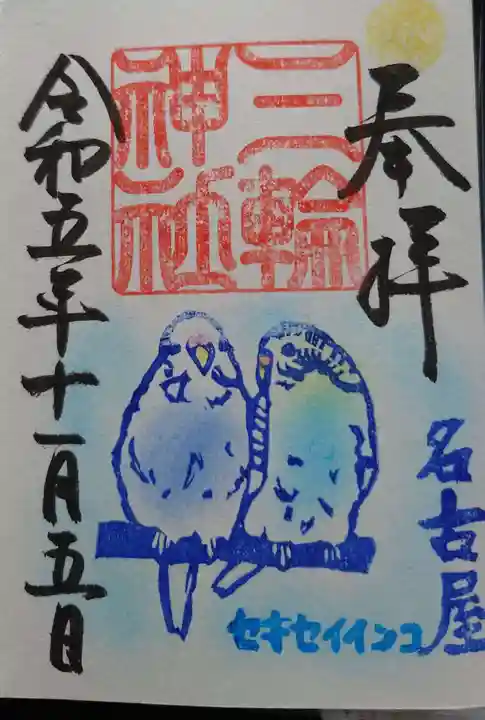 奉拝
三輪
神社
令和五年十一月五日
名古屋
セキセイインコ